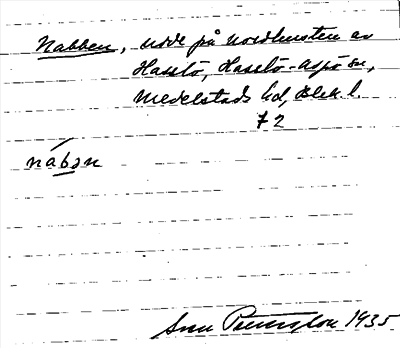 Nabben, udde på nordkusten av
Hasslö, Hasslö-Aspö sn,
Medelstads hd, Blek. l.
72
nábən
Sven Pettersson 1935